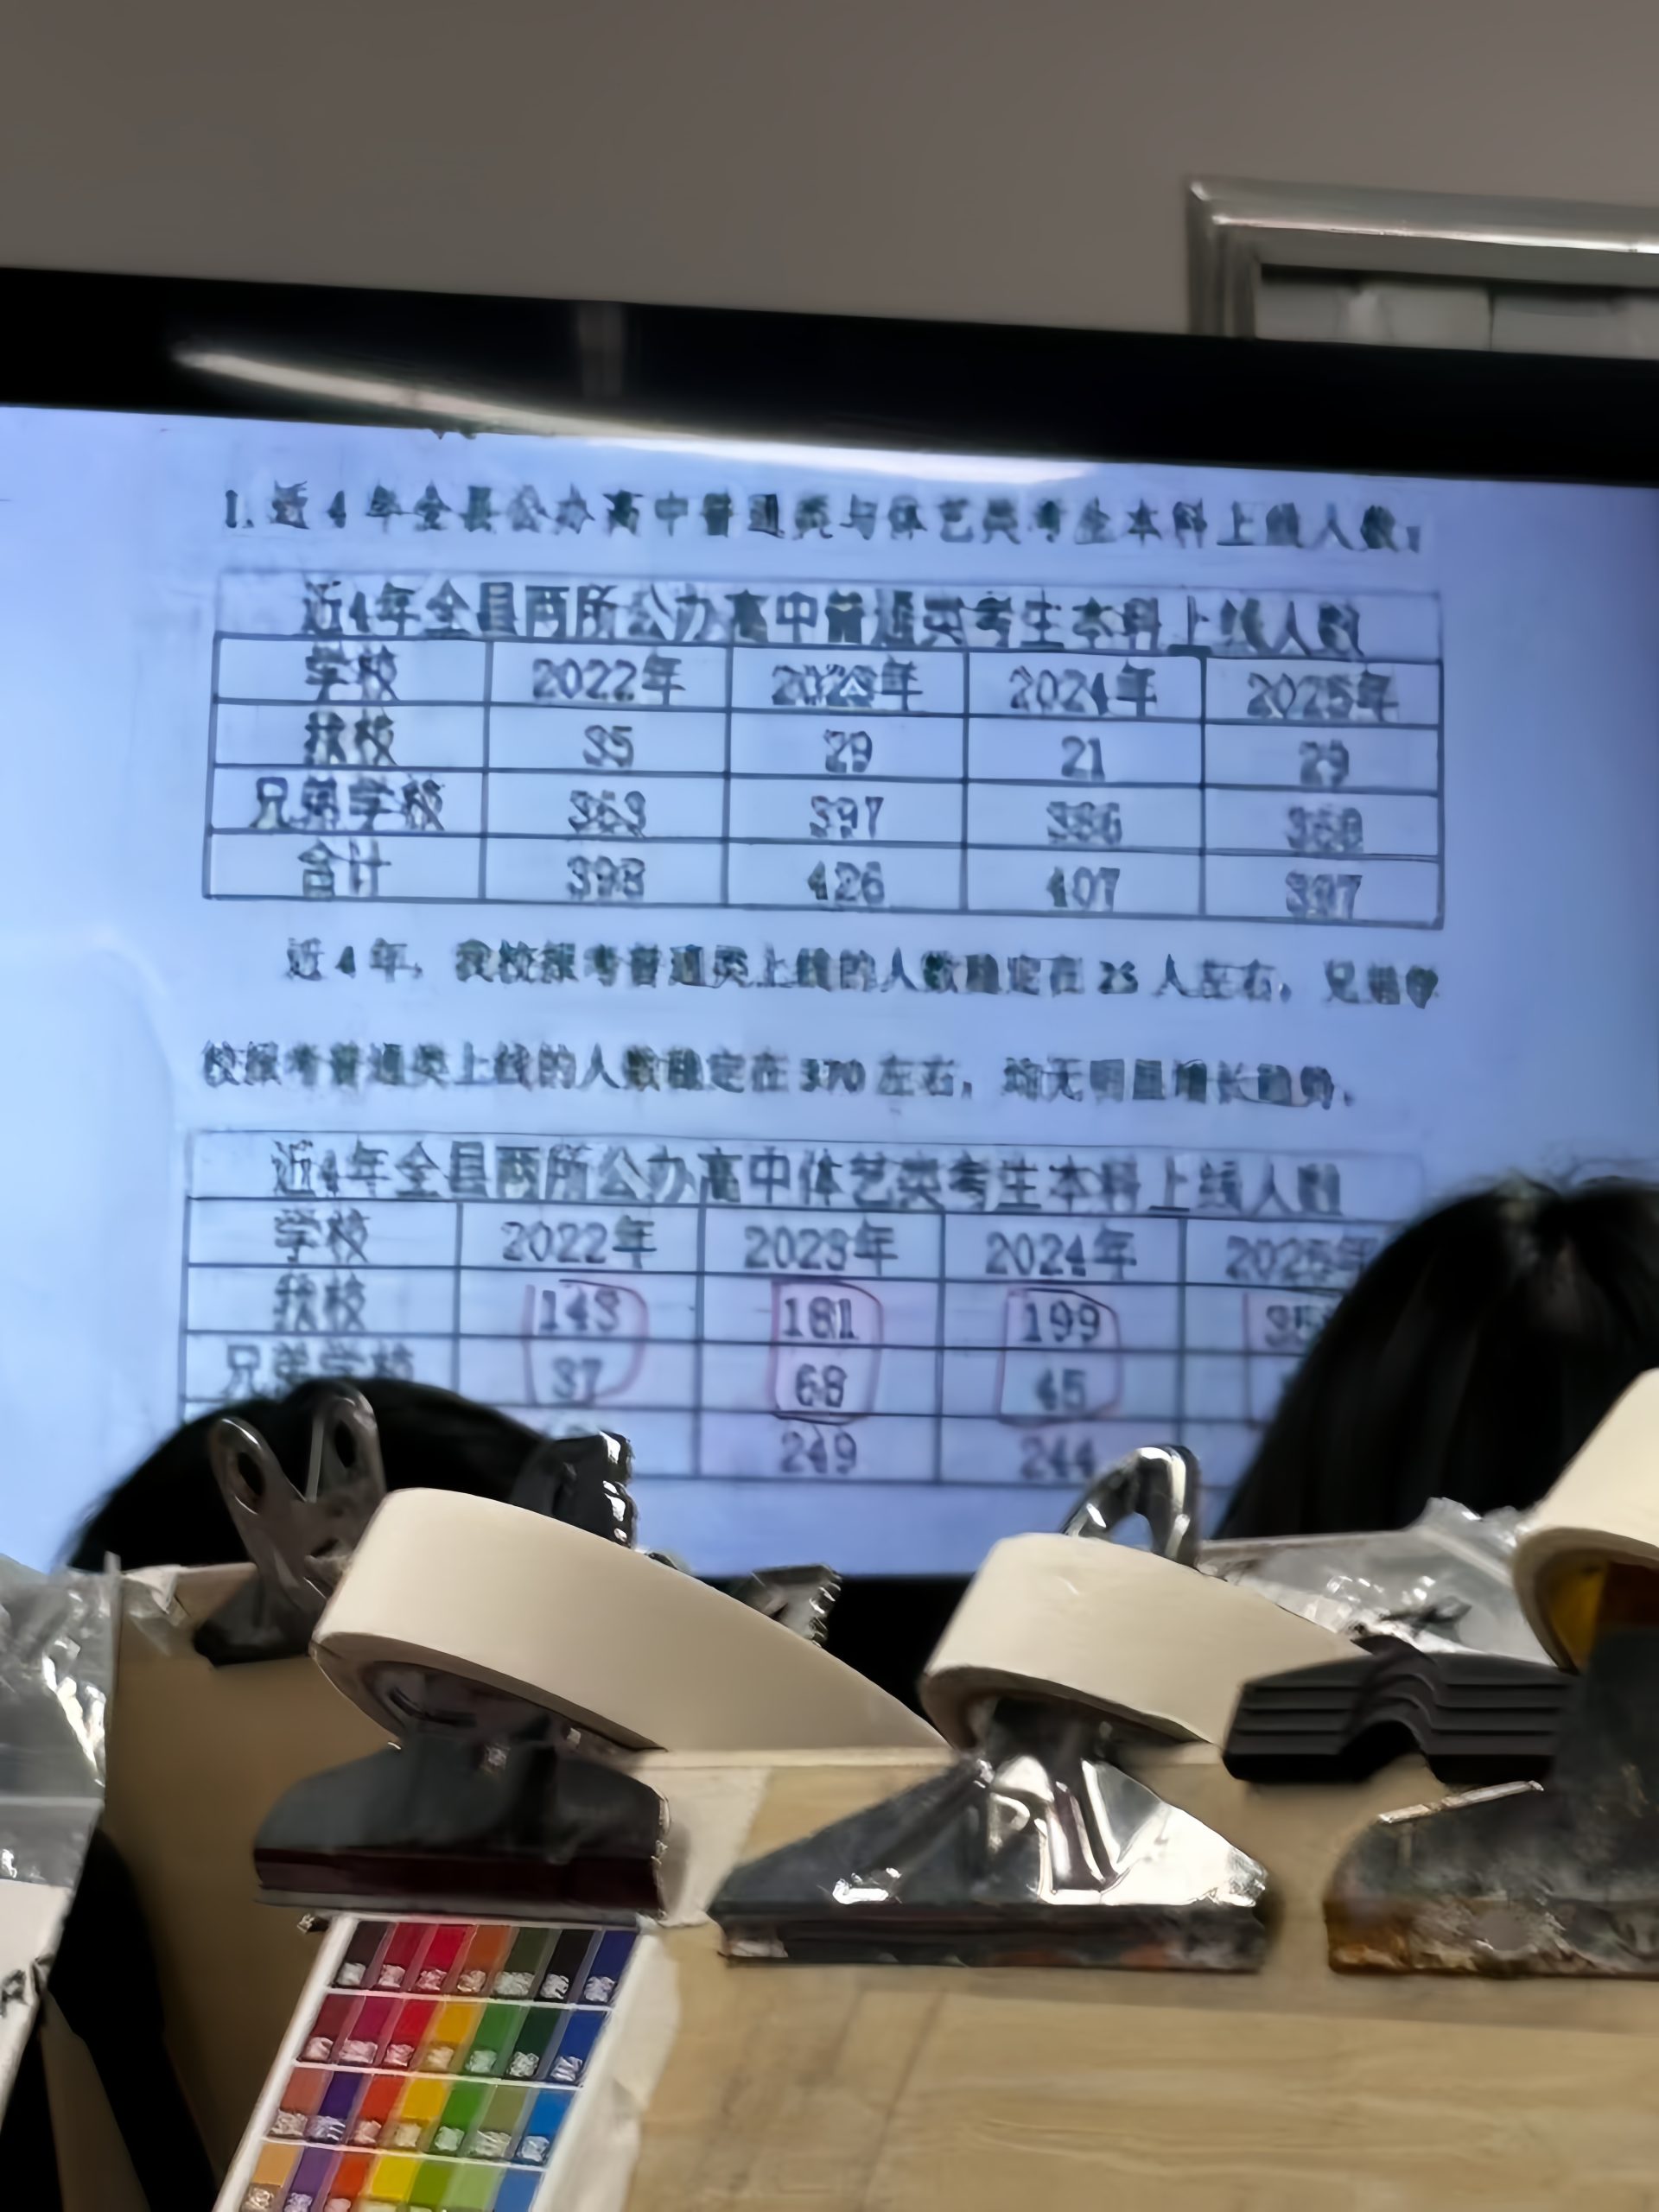 1. 近 4 年全县公办高中普通类与体艺类考生本科上线人数：
近4年全县两所公办高中普通类考生本科上线人数
学校 2022年 2023年 2024年 2025年
我校 35 29 21 29
兄弟学校 363 397 386
合计 398 426 407
近 4 年，我校报考普通类上线的人数稳定在 人左右，兄弟学
校报考普通类上线的人数稳定在 370 左右，均无明显增长趋势。
近4年全县两所公办高中体艺类考生本科上线人数
学校 2022年 2023年 2024年 2025年
我校 143 181 199
兄弟学校 37 68 45
249 244